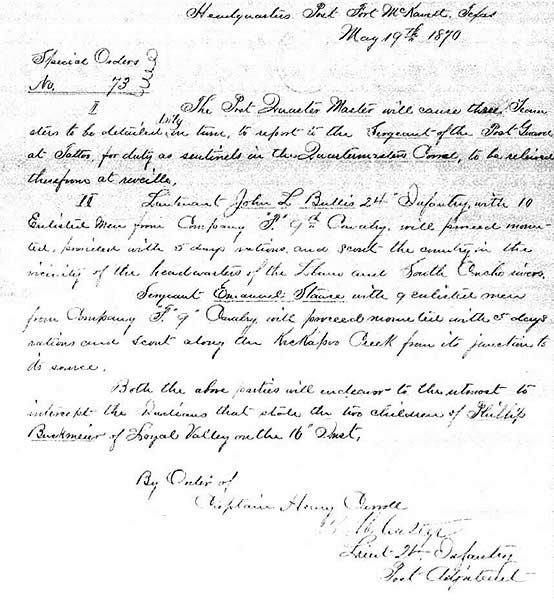 Headquarters Post Fort McKavett, Texas
May 19th 1870
Special Orders
No. 73
I
The Post Quarter Master will cause three Team
sters to be detailed daily in time, to report to the Sergeant of the Post Guard
at Tattoo, for duty as sentinels in the Quartermasters Corral, to be relieved
therefrom at reveille.
II
Lieutenant John L Bullis 24" Infantry, with 10
Enlisted Men from Company "F" 9th Cavalry, will proceed moun-
ted, provided with 5 days rations, and scout the country in the
vicinity of the headwaters of the Llano and South Concho rivers.
Sergeant Emanuel Stance with 9 enlisted men
from Company "F" 9" Cavalry will proceed mounted with 5 days
rations and scout along the Kickapoo Creek from its junction to
its source.
Both the above parties will endeavor to the utmost to
intercept the Indians that stole the two children of Phillip
Buckmeier of Loyal Valley on the 16" Inst.
By Order of
Captain Henry Carroll
Lieut 24" Infantry
Post Adjutant